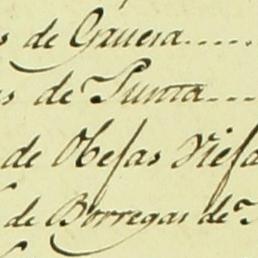 s de Gavera.....
s de Punta....
de Obejas Vieja
de Borregas de